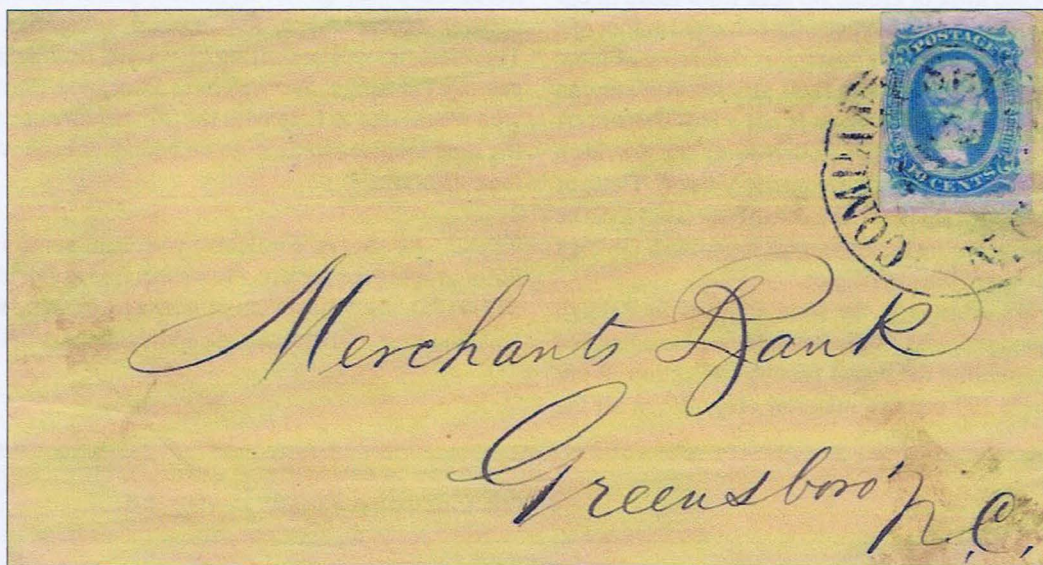 POSTAGE
CENTS
COMPAN
N.C.
Merchants Bank
Greensboro'
N.C.,